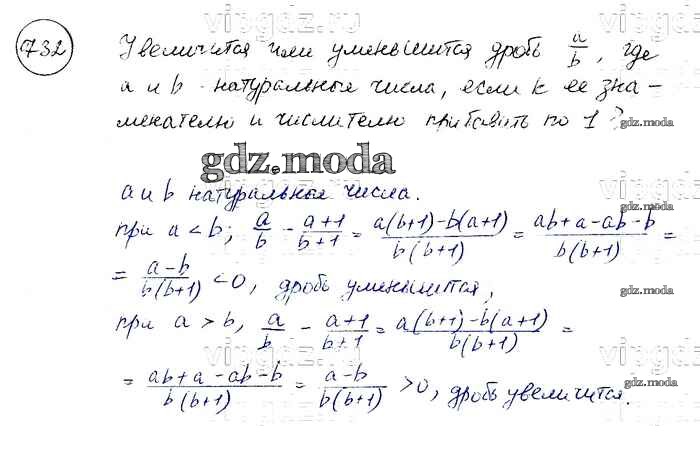 732
Увеличится или уменьшится дробь a/b, где
a и b - натуральные числа, если к ее зна-
менателю и числителю прибавить по 1?
gdz.moda
a и b натуральные числа.
при a < b; a/b - (a+1)/(b+1) = (a(b+1)-b(a+1))/(b(b+1)) = (ab+a-ab-b)/(b(b+1)) =
= (a-b)/(b(b+1)) <0, дробь уменьшится,
при a > b, a/b - (a+1)/(b+1) = (a(b+1)-b(a+1))/(b(b+1)) =
= (ab+a-ab-b)/(b(b+1)) = (a-b)/(b(b+1)) >0, дробь увеличится.